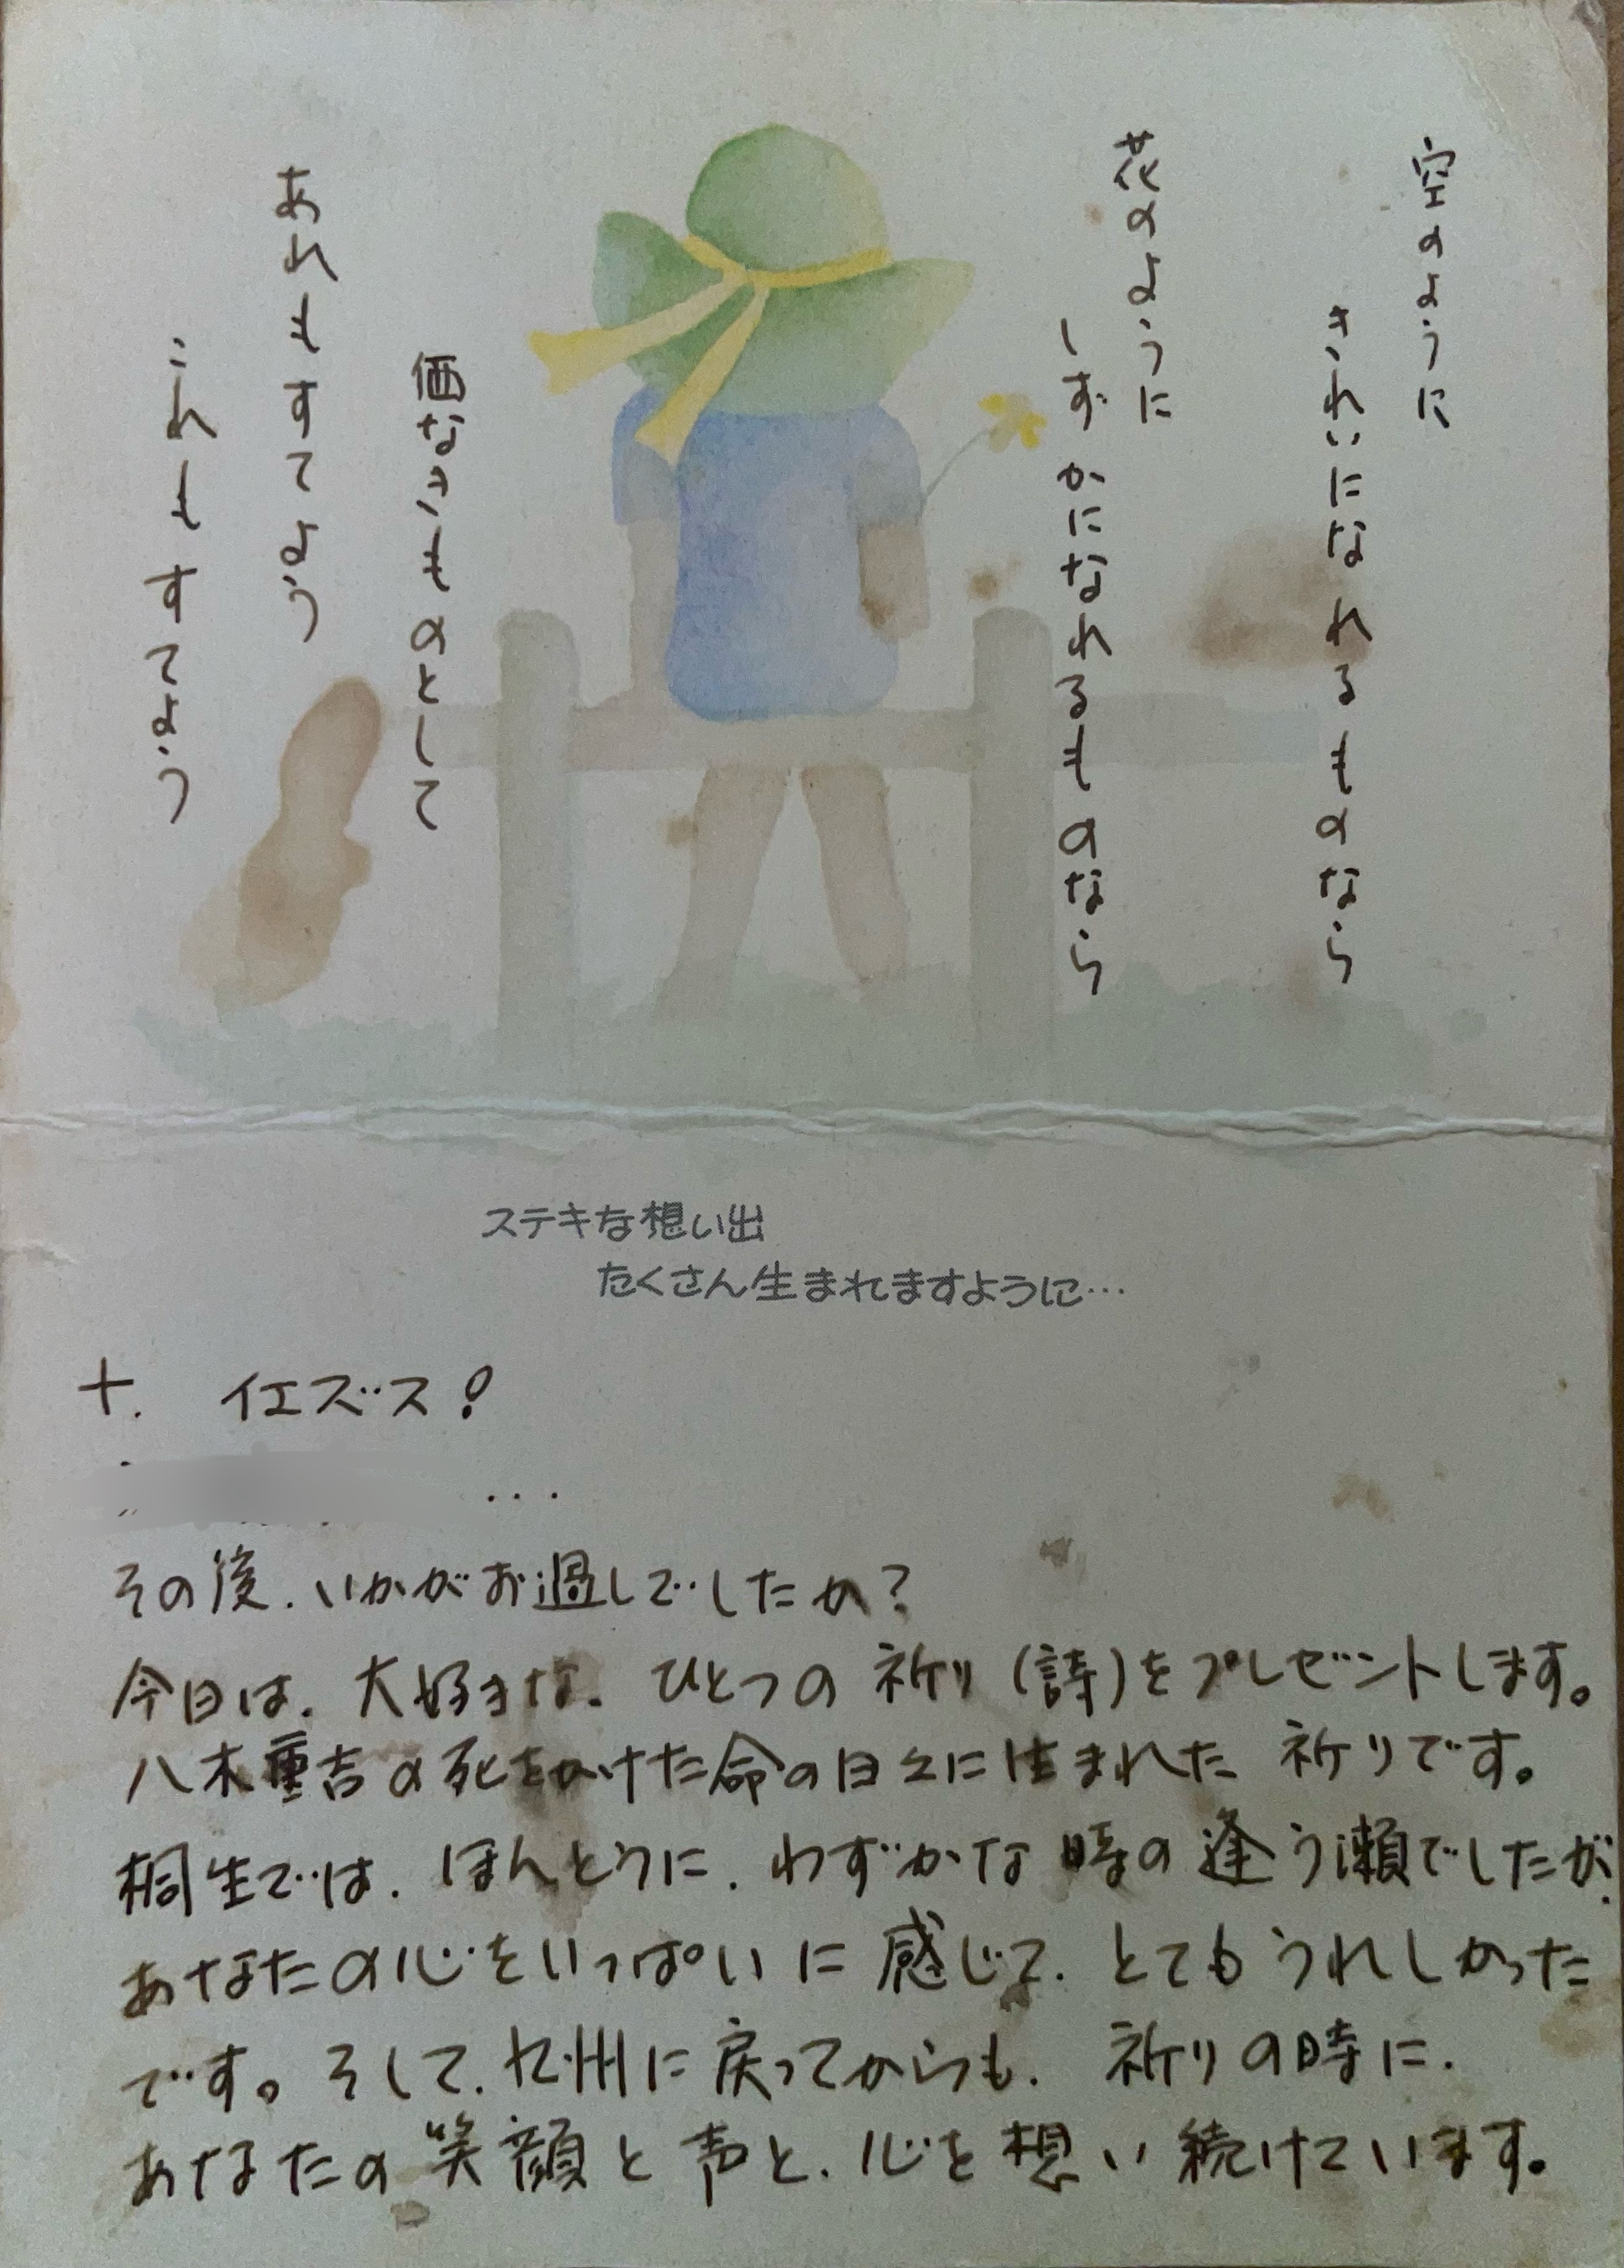 空のように
きれいになれるものなら
花のように
しずかになれるものなら
価なきものとして
あれもすてよう
これもすてよう
ステキな想い出
たくさん生まれますように…
十. イエズス!
...
その後、いかがお過しでしたか?
今日は、大好きな、ひとつの祈り(詩)をプレゼントします。
八木重吉の死をかけた命の日々に生まれた祈りです。
桐生では、ほんとうに、わずかな時の逢う瀬でしたが、
あなたの心をいっぱいに感じて、とてもうれしかった
です。そして、九州に戻ってからも、祈りの時に、
あなたの笑顔と声と、心を想い続けています。